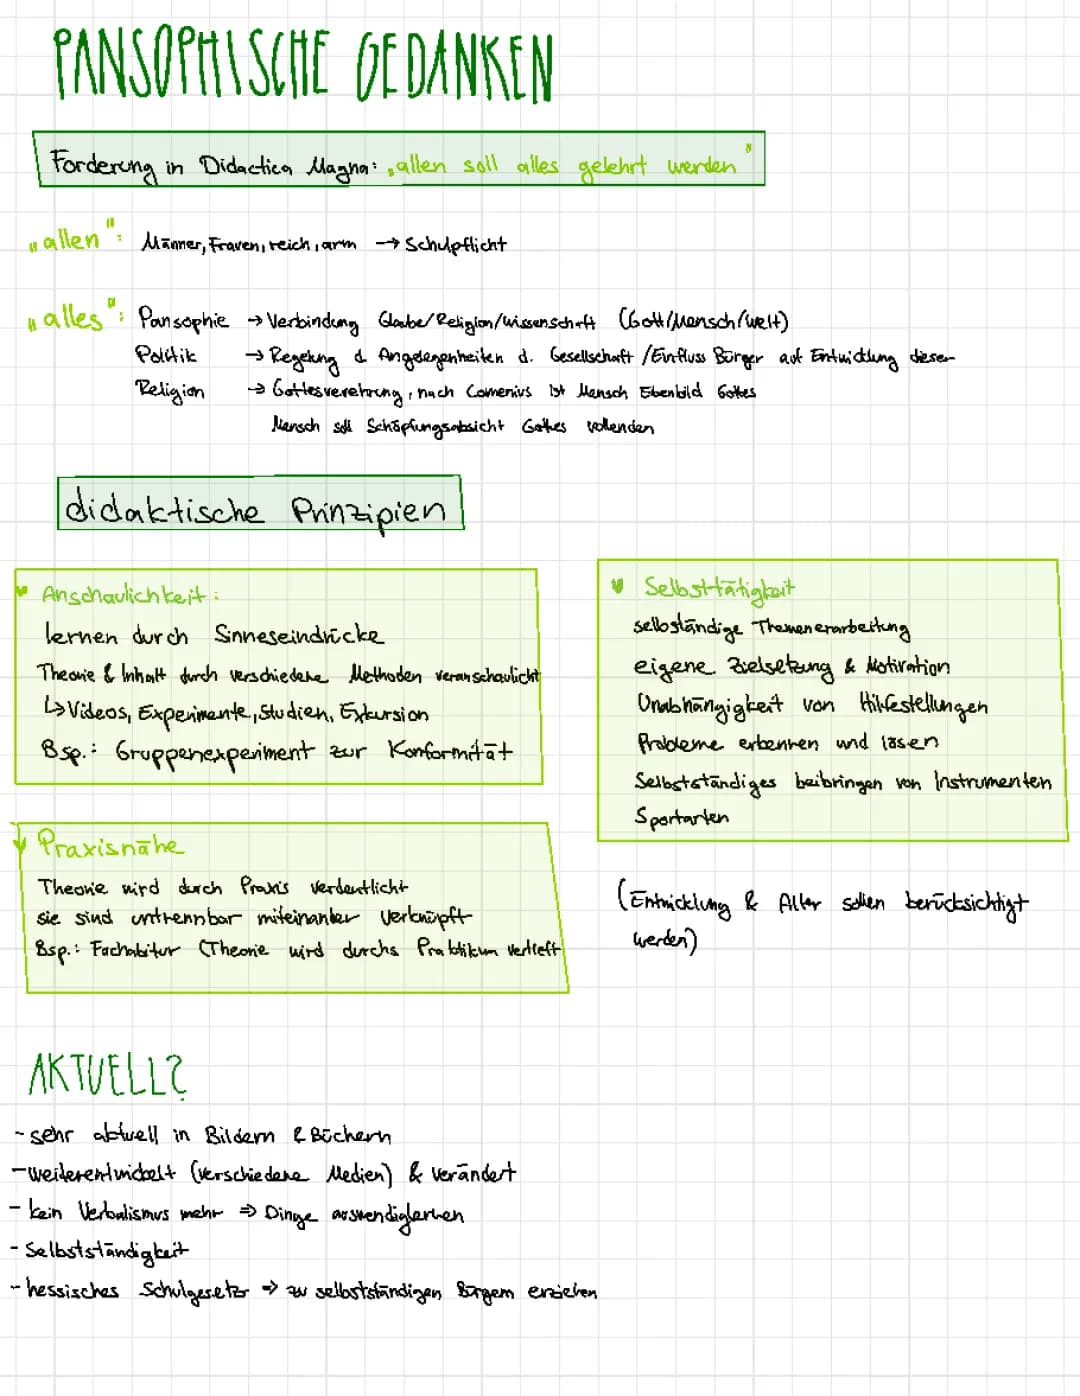 PANSOPHISCHE GEDANKEN
Forderung in Didactica Magna: „allen soll alles gelehrt werden"
„allen": Männer, Frauen, reich, arm → Schulpflicht
„alles": Pansophie → Verbindung Glaube/Religion/Wissenschaft (Gott/Mensch/Welt)
Politik → Regelung d. Angelegenheiten d. Gesellschaft / Einfluss Bürger auf Entwicklung dieser
Religion → Gottesverehrung, nach Comenius ist Mensch Ebenbild Gottes
Mensch soll Schöpfungsabsicht Gottes vollenden
didaktische Prinzipien
Anschaulichkeit:
lernen durch Sinneseindrücke
Theorie & Inhalt durch verschiedene Methoden veranschaulicht
↳ Videos, Experimente, Studien, Exkursion
Bsp.: Gruppenexperiment zur Konformität
Praxisnähe
Theorie wird durch Praxis verdeutlicht
sie sind untrennbar miteinander verknüpft
Bsp.: Fachabitur (Theorie wird durchs Praktikum vertieft
Selbsttätigkeit
selbständige Themenerarbeitung
eigene Zielsetzung & Motivation
Unabhängigkeit von Hilfestellungen
Probleme erkennen und lösen
Selbstständiges beibringen von Instrumenten
Sportarten
(Entwicklung & Alter sollen berücksichtigt
werden)
AKTUELL?
- sehr aktuell in Bildern & Büchern
- weiterentwickelt (verschiedene Medien) & verändert
- kein Verbalismus mehr ⇒ Dinge auswendiglernen
- Selbstständigkeit
- hessisches Schulgesetz ⇒ zu selbstständigen Bürgern erziehen